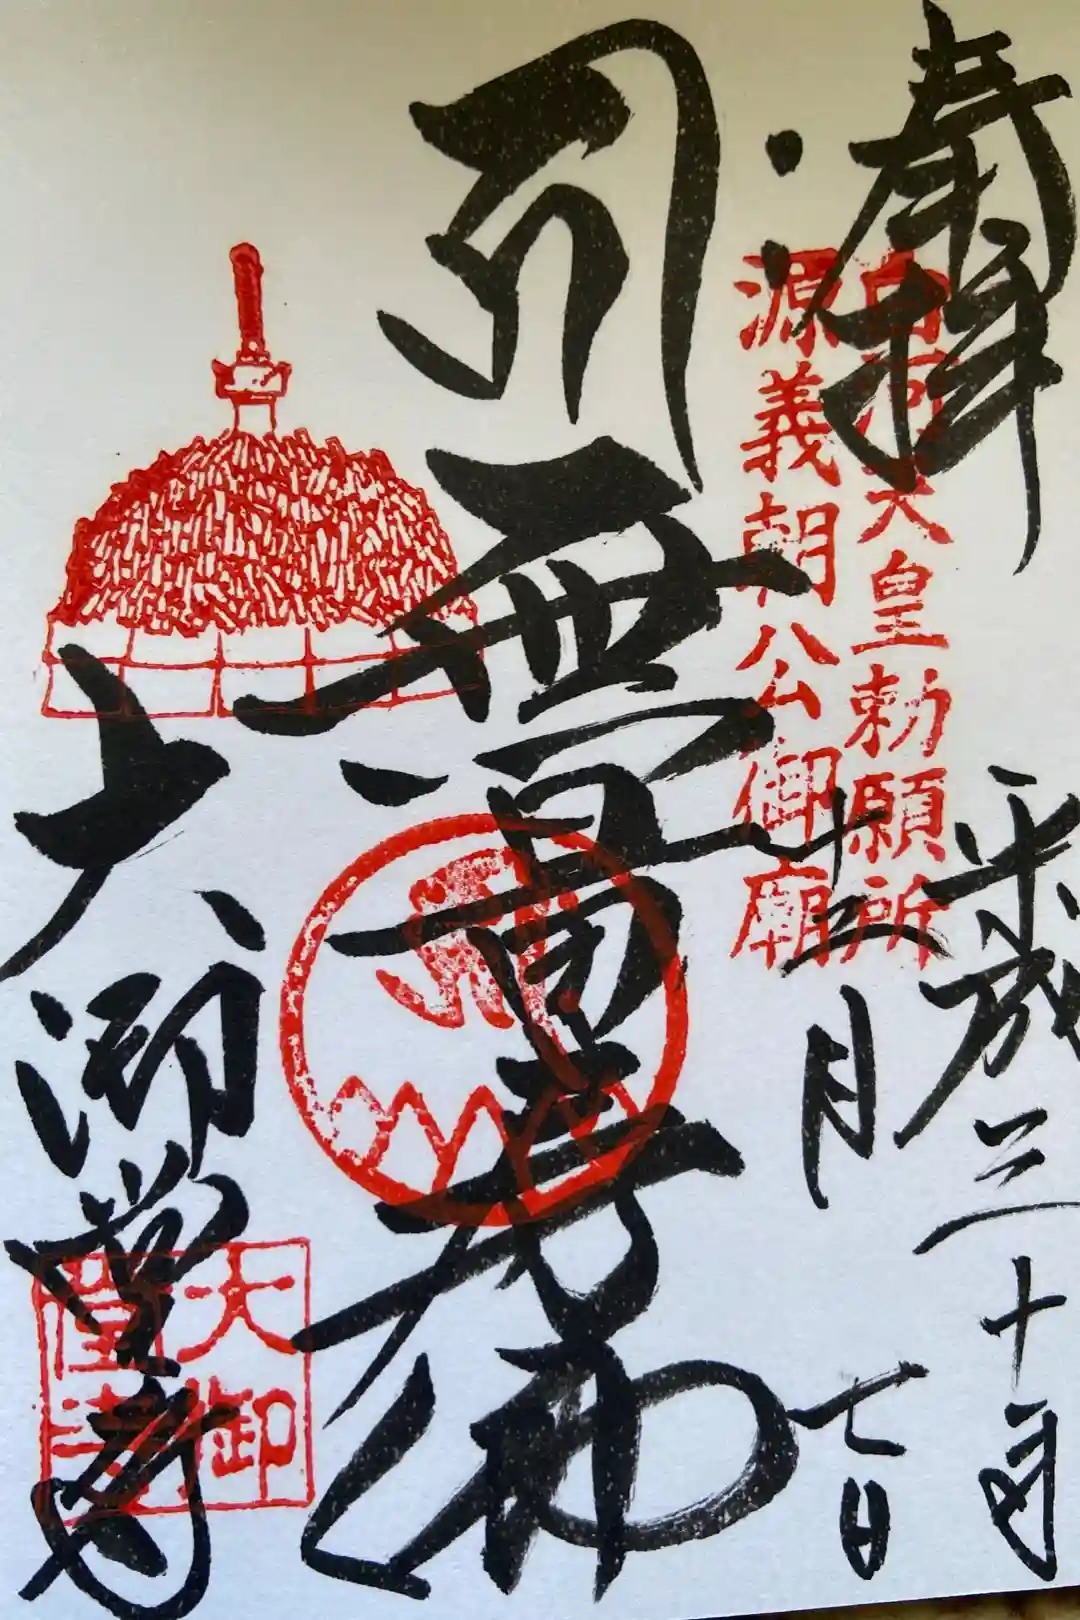 奉拝
白河天皇勅願所
源義朝公御廟
平成三十年
十二月七日
無量寿佛
大御堂寺
大御
堂寺